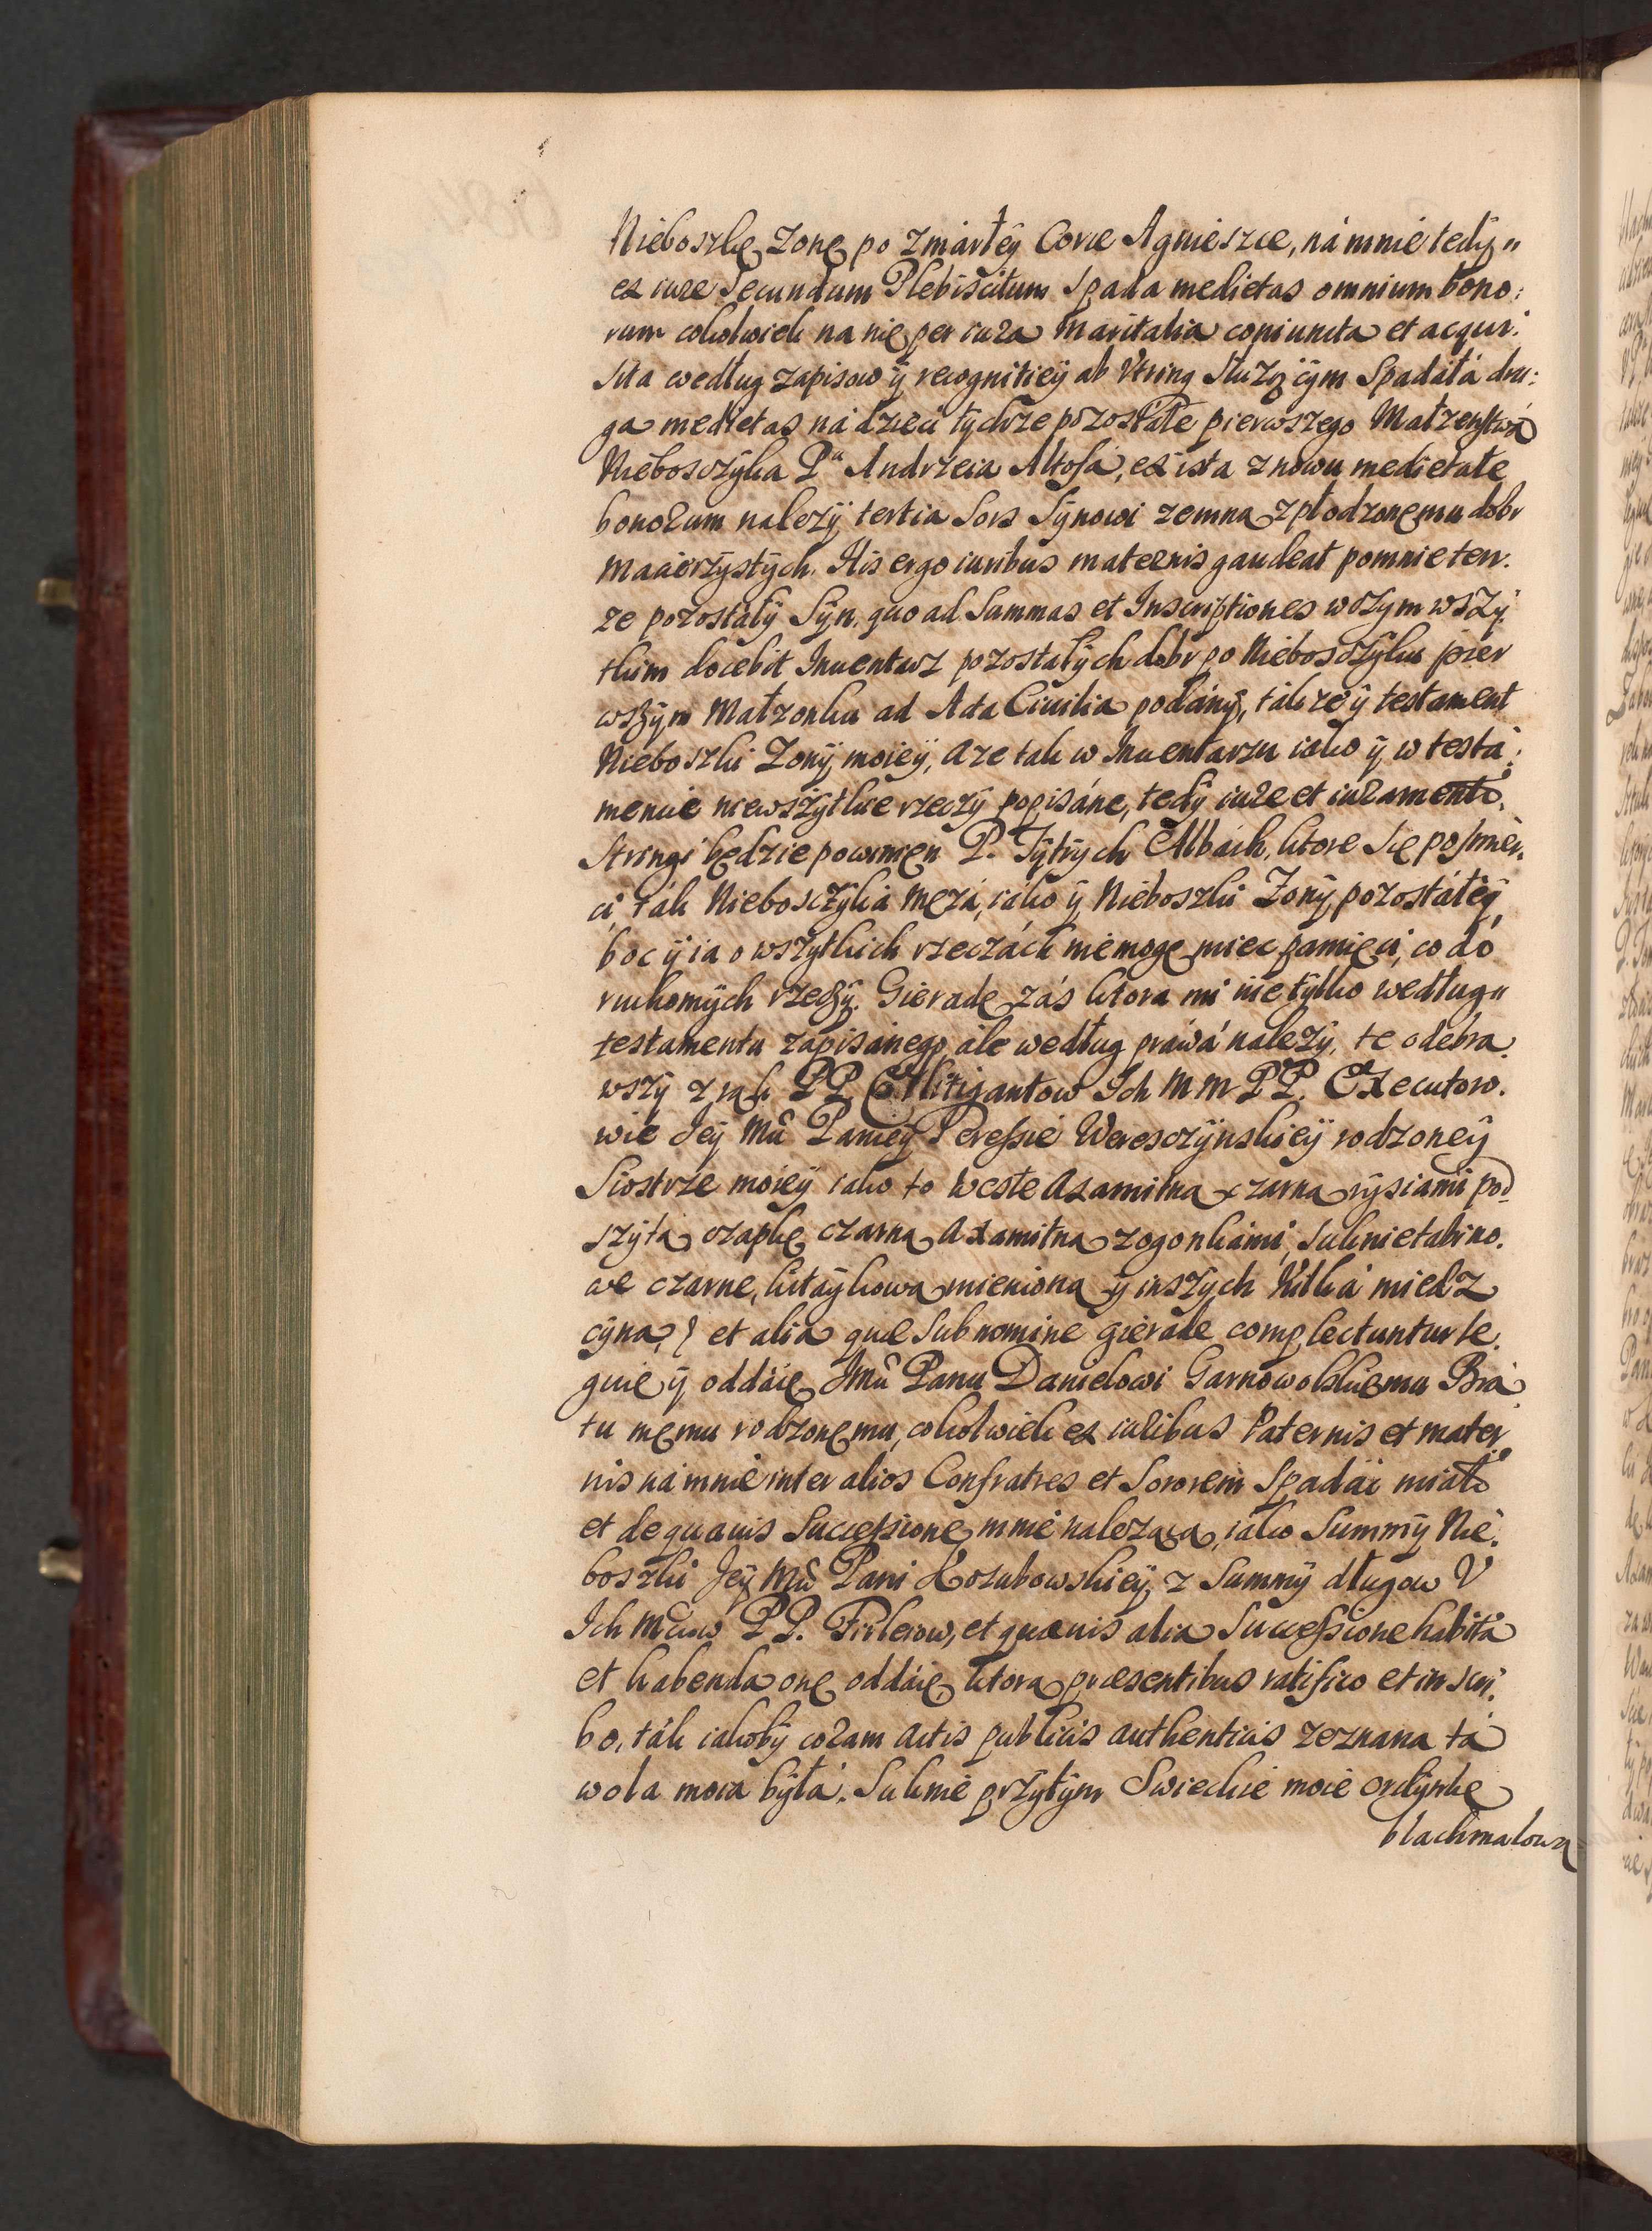 Nieboszkę Zonę po zmárłey Corce Agnieszce, ná mnie tedy
ex iure Secundum Plebiscitum Spada medietas omnium bono:
rum cokolwiek na nię per iura Maritalia coniuncta et acqui:
sita według zapisow ÿ recognitieÿ ab Vtrinq słuzącÿm Spadáłá dru:
ga medietas ná dzieci tÿchze pozostáłe pierwszego Małzenstwá
Nieboszczÿka Pª Andrzeia Altosá, ex ista znowu medietate
bonorum nalezÿ tertia Sors Sÿnowi zemną zpłodzonemu dobr
Macierzÿstÿch. His ergo iuribus maternis gaudeat pomnie ten.
ze pozostáłÿ Sÿn, quo ad Summas et Inscriptiones wczym wszÿ.
tkim docebit Inuentarz pozostałÿch dobr po Nieboszczÿku pier
wszÿm Małzonku ad Acta Ciuilia podánÿ, tákze ÿ testament
Nieboszki Zonÿ moieÿ, A ze tak w Inuentarzu iako ÿ w testá:
mencie niewszÿtkie rzeczÿ popisáne, tedÿ iure et iuramento.
stringi będzie powinien P. Tÿtrÿch Elbách, ktore się posmier.
ci ták Nieboszczÿká Męzá, iako ÿ Nieboszki Zonÿ pozostáłeÿ,
boc ÿ ia o wszÿtkich rzeczách niemogę miec pamięci, co do
ruchomÿch rzeczÿ. Gieradę zás ktora mi nie tÿlko według
testamentu zapisánego ále według práwá nalezÿ, te odebra.
wszÿ z rąk PP. Collitigantow Ich Mm PP. Executoro.
wie Jeÿ Mci Panieÿ Peressie Weresczÿnskieÿ rodzoneÿ
Siostrze moieÿ iako to Westę Axamitną czarną rÿsiami pod
szÿtą czapkę czarną Axamitną zogonkámi, Suknie tabino.
we czarne, kitáÿkową mienioną ÿ inszÿch kilká miedz
cÿną, et alia quæ Sub nomine gierade complectuntur le.
guię ÿ oddáię Jmci Panu Danielowi Garnowolskiemu Brá.
tu memu rodzonemu, cokolwiek ex iuribus Paternis et mater
nis námnie inter alios Confratres et Sororem Spadái miáło
et dequauis Successione mnie nalezącą, iako Summÿ Nie.
boszki Jeÿ Mci Pani Kozubowskieÿ, z Summÿ długow V
Ich Mciow PP. Firleiow, et quæuis alia Successione habitá
et habenda onę oddáię ktorą præsentibus ratifico et inscri.
bo, ták iakobÿ coram Actis publicis authenticis zeznana tá
wola moiá bÿłá. Suknie przÿtÿm Swieckie moie ordÿnkę
blachmalową